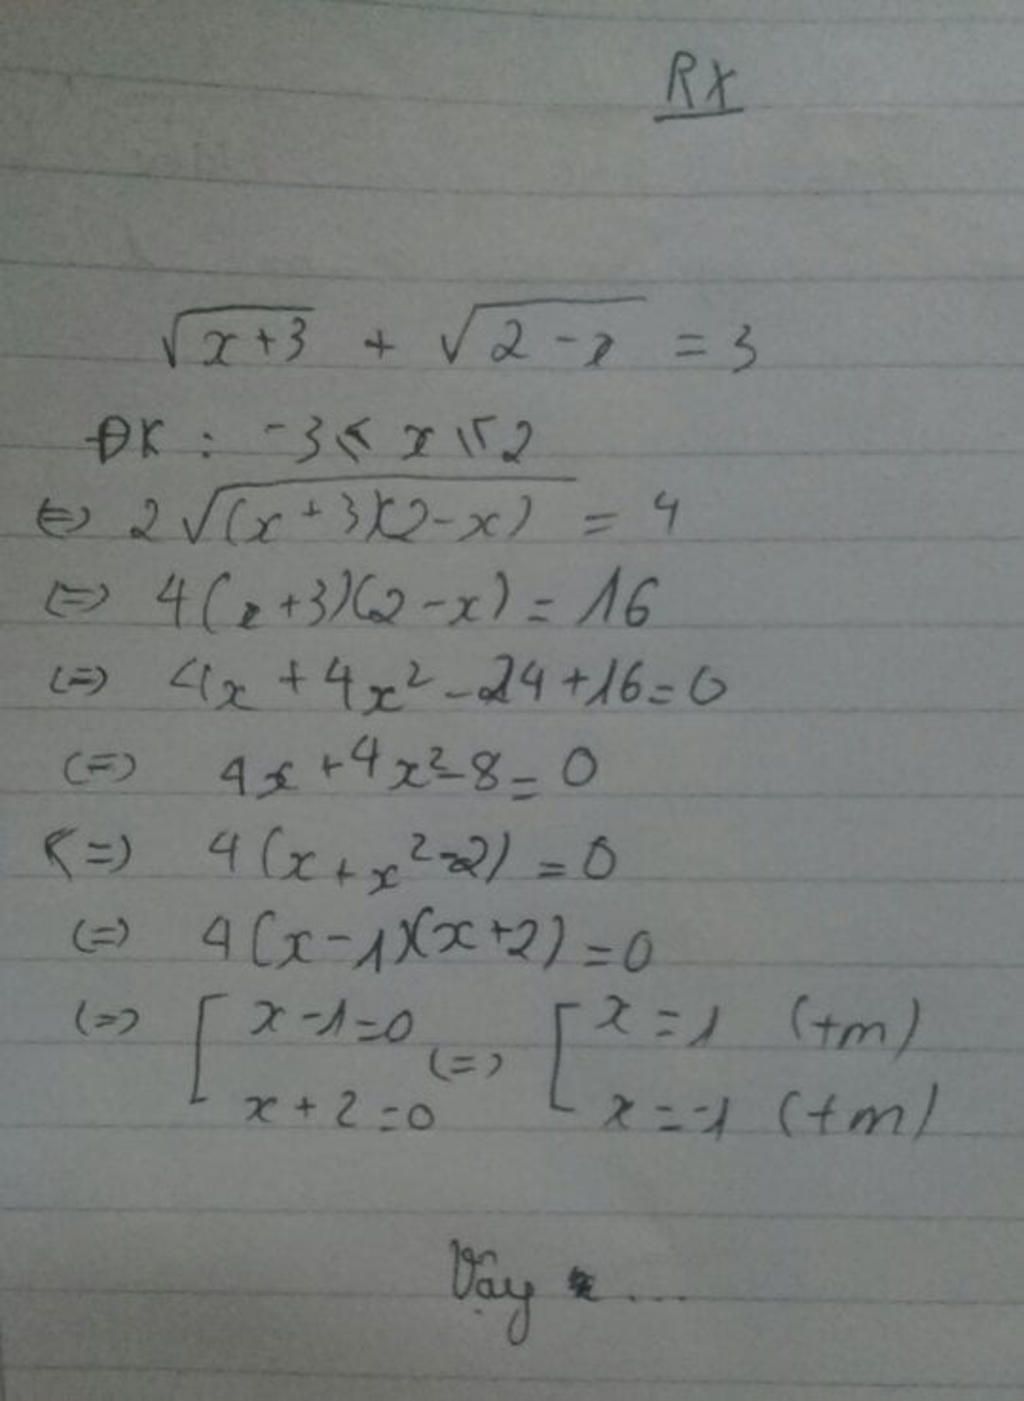 RX
√(x+3) + √(2-x) = 3
ĐK : -3 ≤ x ≤ 2
(=) 2√((x+3)(2-x)) = 4
(=) 4(x+3)(2-x) = 16
(=) 4x + 4x² - 24 + 16 = 0
(=) 4x + 4x² - 8 = 0
(=) 4(x + x² - 2) = 0
(=) 4(x-1)(x+2) = 0
(=) [ x-1=0 (=) [ x = 1 (tm)
x+2=0 x = -1 (tm)
Vậy ...